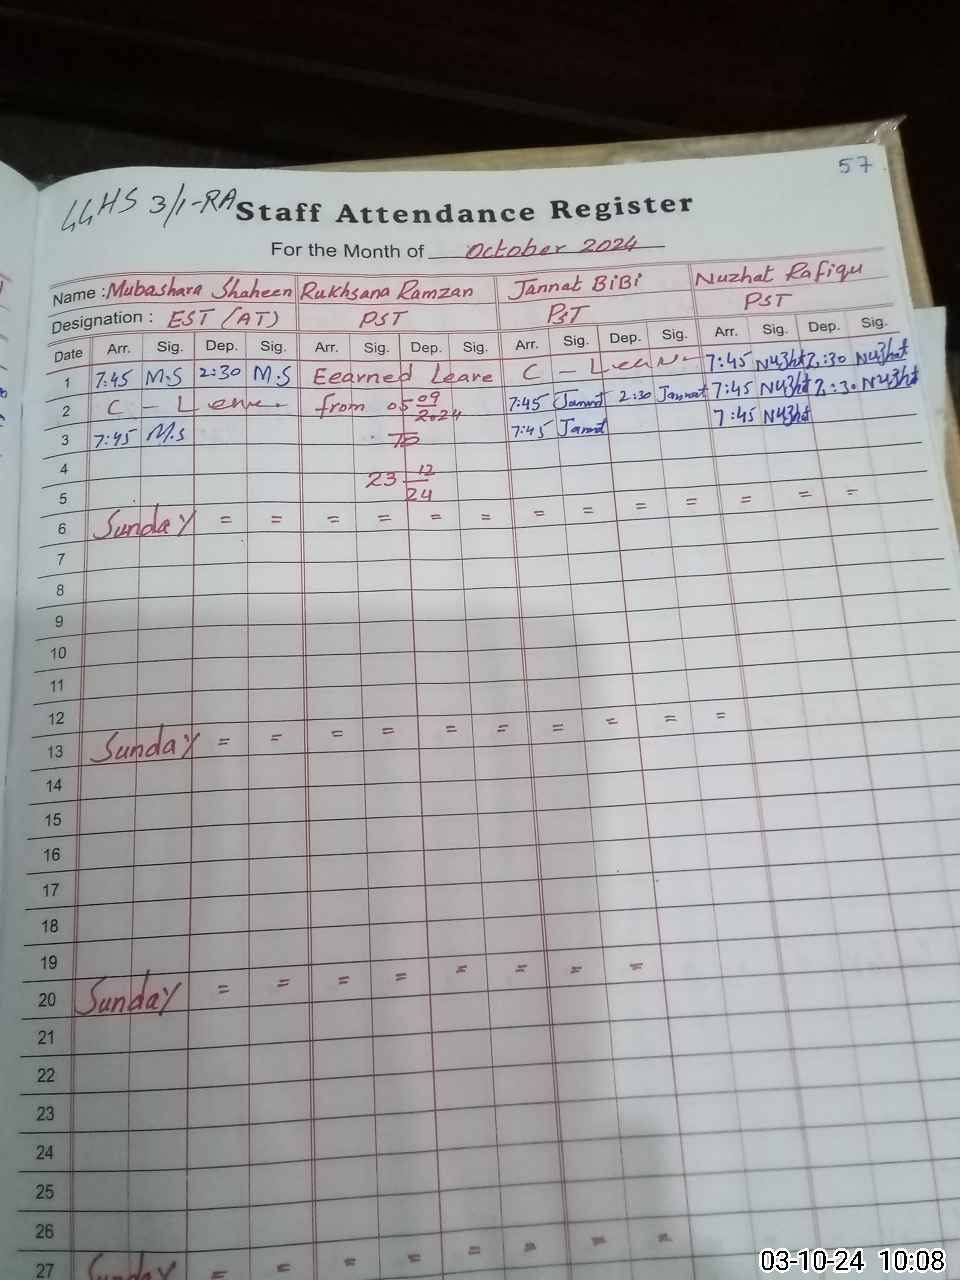 57
GGHS 3/1-RA
Staff Attendance Register
For the Month of October 2024
Name : Mubashara Shaheen Rukhsana Ramzan Jannat BiBi Nuzhat Rafiqu
Designation : EST (AT) PST PST PST
Date Arr. Sig. Dep. Sig. Arr. Sig. Dep. Sig. Arr. Sig. Dep. Sig. Arr. Sig. Dep. Sig.
1 7:45 M.S 2:30 M.S Eearned Leave C - Leave 7:45 Nuzhat 2:30 Nuzhat
2 C - Leave from 05 09 2024 7:45 Jannat 2:30 Jannat 7:45 Nuzhat 2:30 Nuzhat
3 7:45 M.S To 7:45 Jannat 7:45 Nuzhat
4 23 12
5 24
6 Sunday = = = = = = = = = = = = =
7
8
9
10
11
12
13 Sunday = = = = = = = = = =
14
15
16
17
18
19
20 Sunday = = = = = = = =
21
22
23
24
25
26
27 Sunday = = = = = = = =
03-10-24 10:08